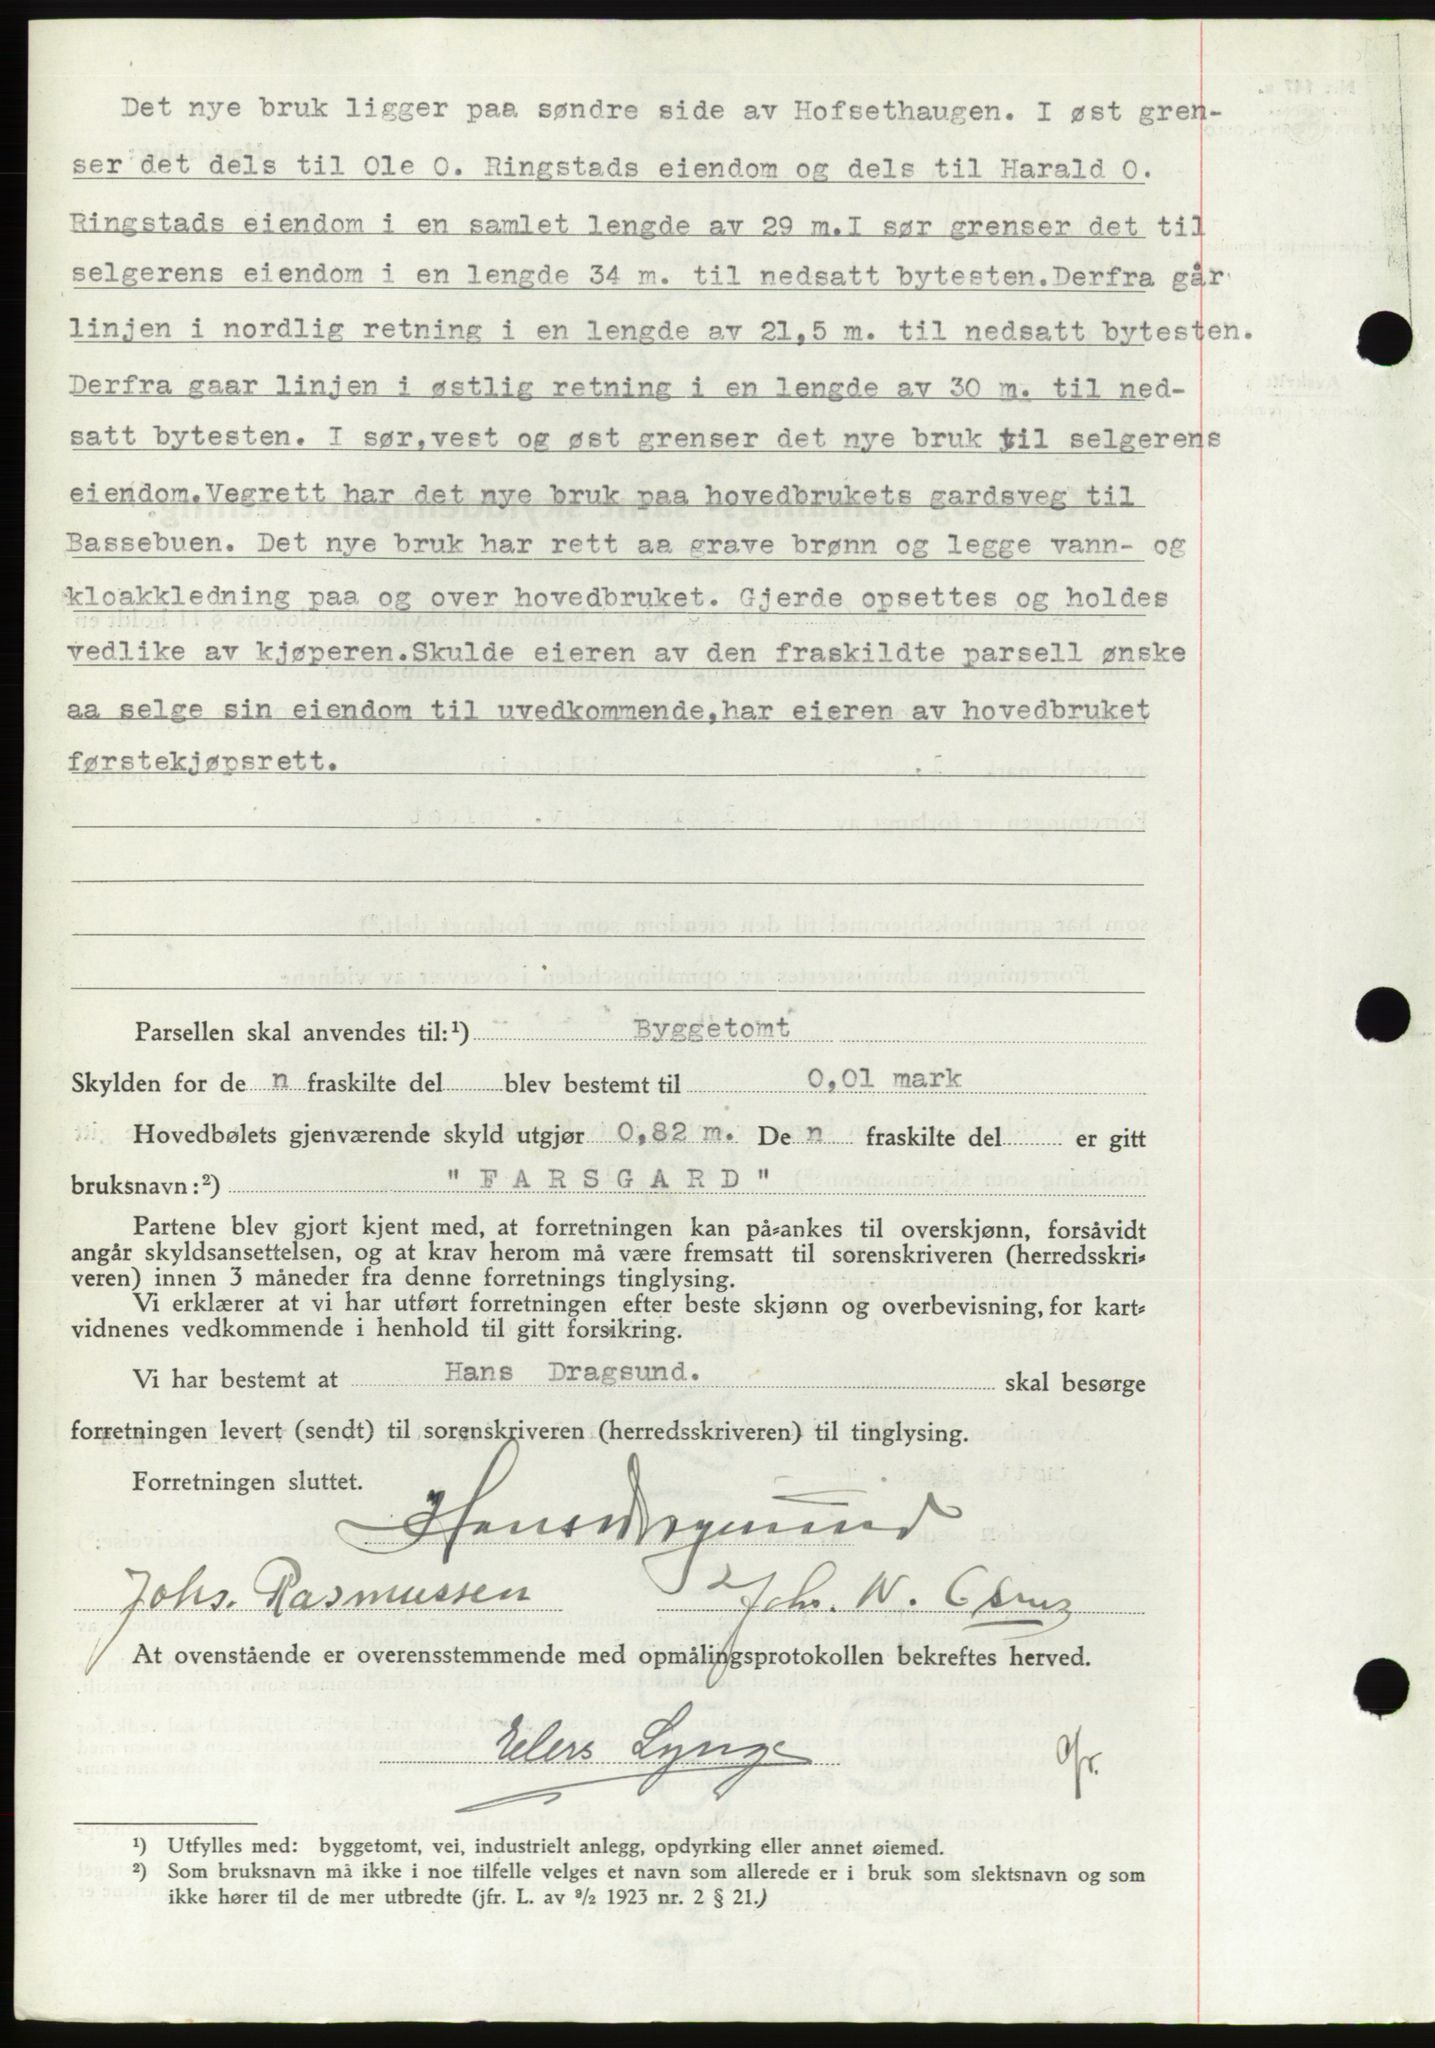 Det nye bruk ligger paa søndre side av Hofsethaugen. I øst gren-
ser det dels til Ole O. Ringstads eiendom og dels til Harald O.
Ringstads eiendom i en samlet lengde av 29 m.I sør grenser det til
selgerens eiendom i en lengde 34 m. til nedsatt bytesten.Derfra går
linjen i nordlig retning i en lengde av 21,5 m. til nedsatt bytesten.
Derfra gaar linjen i østlig retning i en lengde av 30 m. til ned-
satt bytesten. I sør,vest og øst grenser det nye bruk til selgerens
eiendom.Vegrett har det nye bruk paa hovedbrukets gardsveg til
Bassebuen. Det nye bruk har rett aa grave brønn og legge vann- og
kloakkledning paa og over hovedbruket. Gjerde opsettes og holdes
vedlike av kjøperen.Skulde eieren av den fraskildte parsell ønske
aa selge sin eiendom til uvedkommende,har eieren av hovedbruket
førstekjøpsrett.
Parsellen skal anvendes til:¹) Byggetomt
Skylden for de n fraskilte del blev bestemt til 0,01 mark
Hovedbølets gjenværende skyld utgjør 0,82 m. De n fraskilte del er gitt
bruksnavn:²) " F A R S G A R D "
Partene blev gjort kjent med, at forretningen kan på-ankes til overskjønn, forsåvidt
angår skyldsansettelsen, og at krav herom må være fremsatt til sorenskriveren (herredsskri-
veren) innen 3 måneder fra denne forretnings tinglysing.
Vi erklærer at vi har utført forretningen efter beste skjønn og overbevisning, for kart-
vidnenes vedkommende i henhold til gitt forsikring.
Vi har bestemt at Hans Dragsund. skal besørge
forretningen levert (sendt) til sorenskriveren (herredsskriveren) til tinglysing.
Forretningen sluttet.
Hans Dragsund
Johs. Rasmussen Joh. N.
At ovenstående er overensstemmende med opmålingsprotokollen bekreftes herved.
Elers Lynge
¹) Utfylles med: byggetomt, vei, industrielt anlegg, opdyrking eller annet øiemed.
²) Som bruksnavn må ikke i noe tilfelle velges et navn som allerede er i bruk som slektsnavn og som
ikke hører til de mer utbredte (jfr. L. av ⁹/₂ 1923 nr. 2 § 21.)